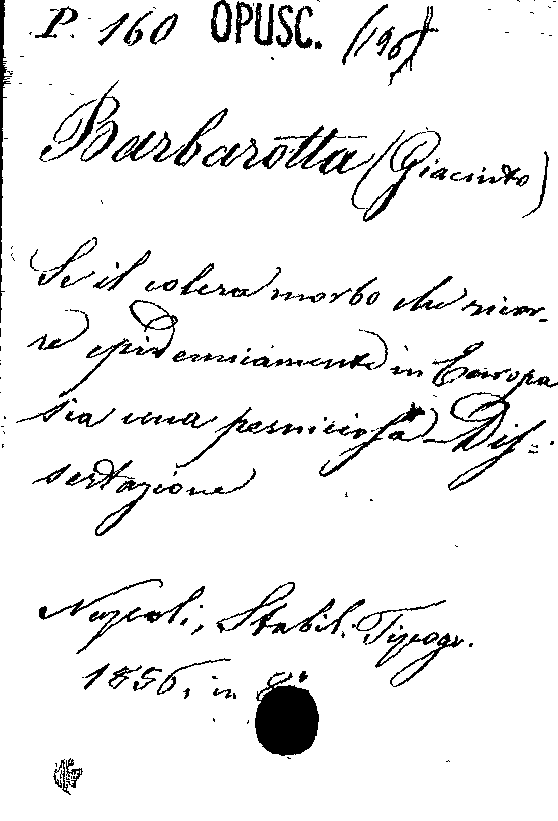 P. 160 OPUSC. (196)
Barbarotta (Giacinto)
Se il colera morbo che ricor-
re epidemicamente in Europa
sia una perniciosa - Dis=
sertazione
Napoli, Stabil. Tipogr.
1856, in 8°